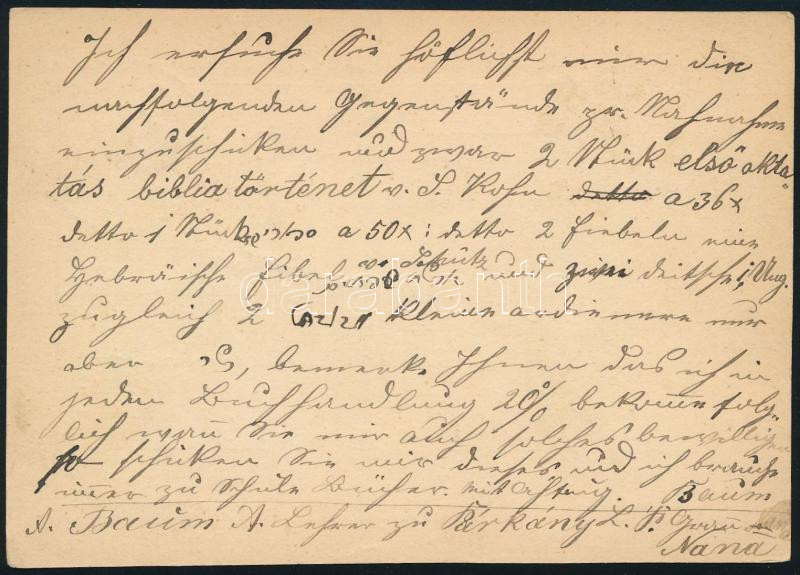 Ich ersuche Sie höflichst mir die
nachfolgenden Gegenstände pr. Nachnahme
einzuschicken und zwar 2 Stück első okta
tás biblia történet v. S. Kohn detto a 36x
detto 1 Stück a 50x : detto 2 Fiebeln eine
Hebräische Fibel v. Schütz und zwei deitsche i. Ung.
zugleich 2 kleine ardienere nur
aber bemerk. Ihnen das ich in
jeden Buchhandlung 20% bekomme folg-
lich wann Sie mir auch solches bewilligen
so schicken Sie mir dieses und ich brauche
immer zu Schule Bücher. Mit Achtung. Baum
A. Baum A. Lehrer zu Párkány L. P. Gran
Nána
darabanth